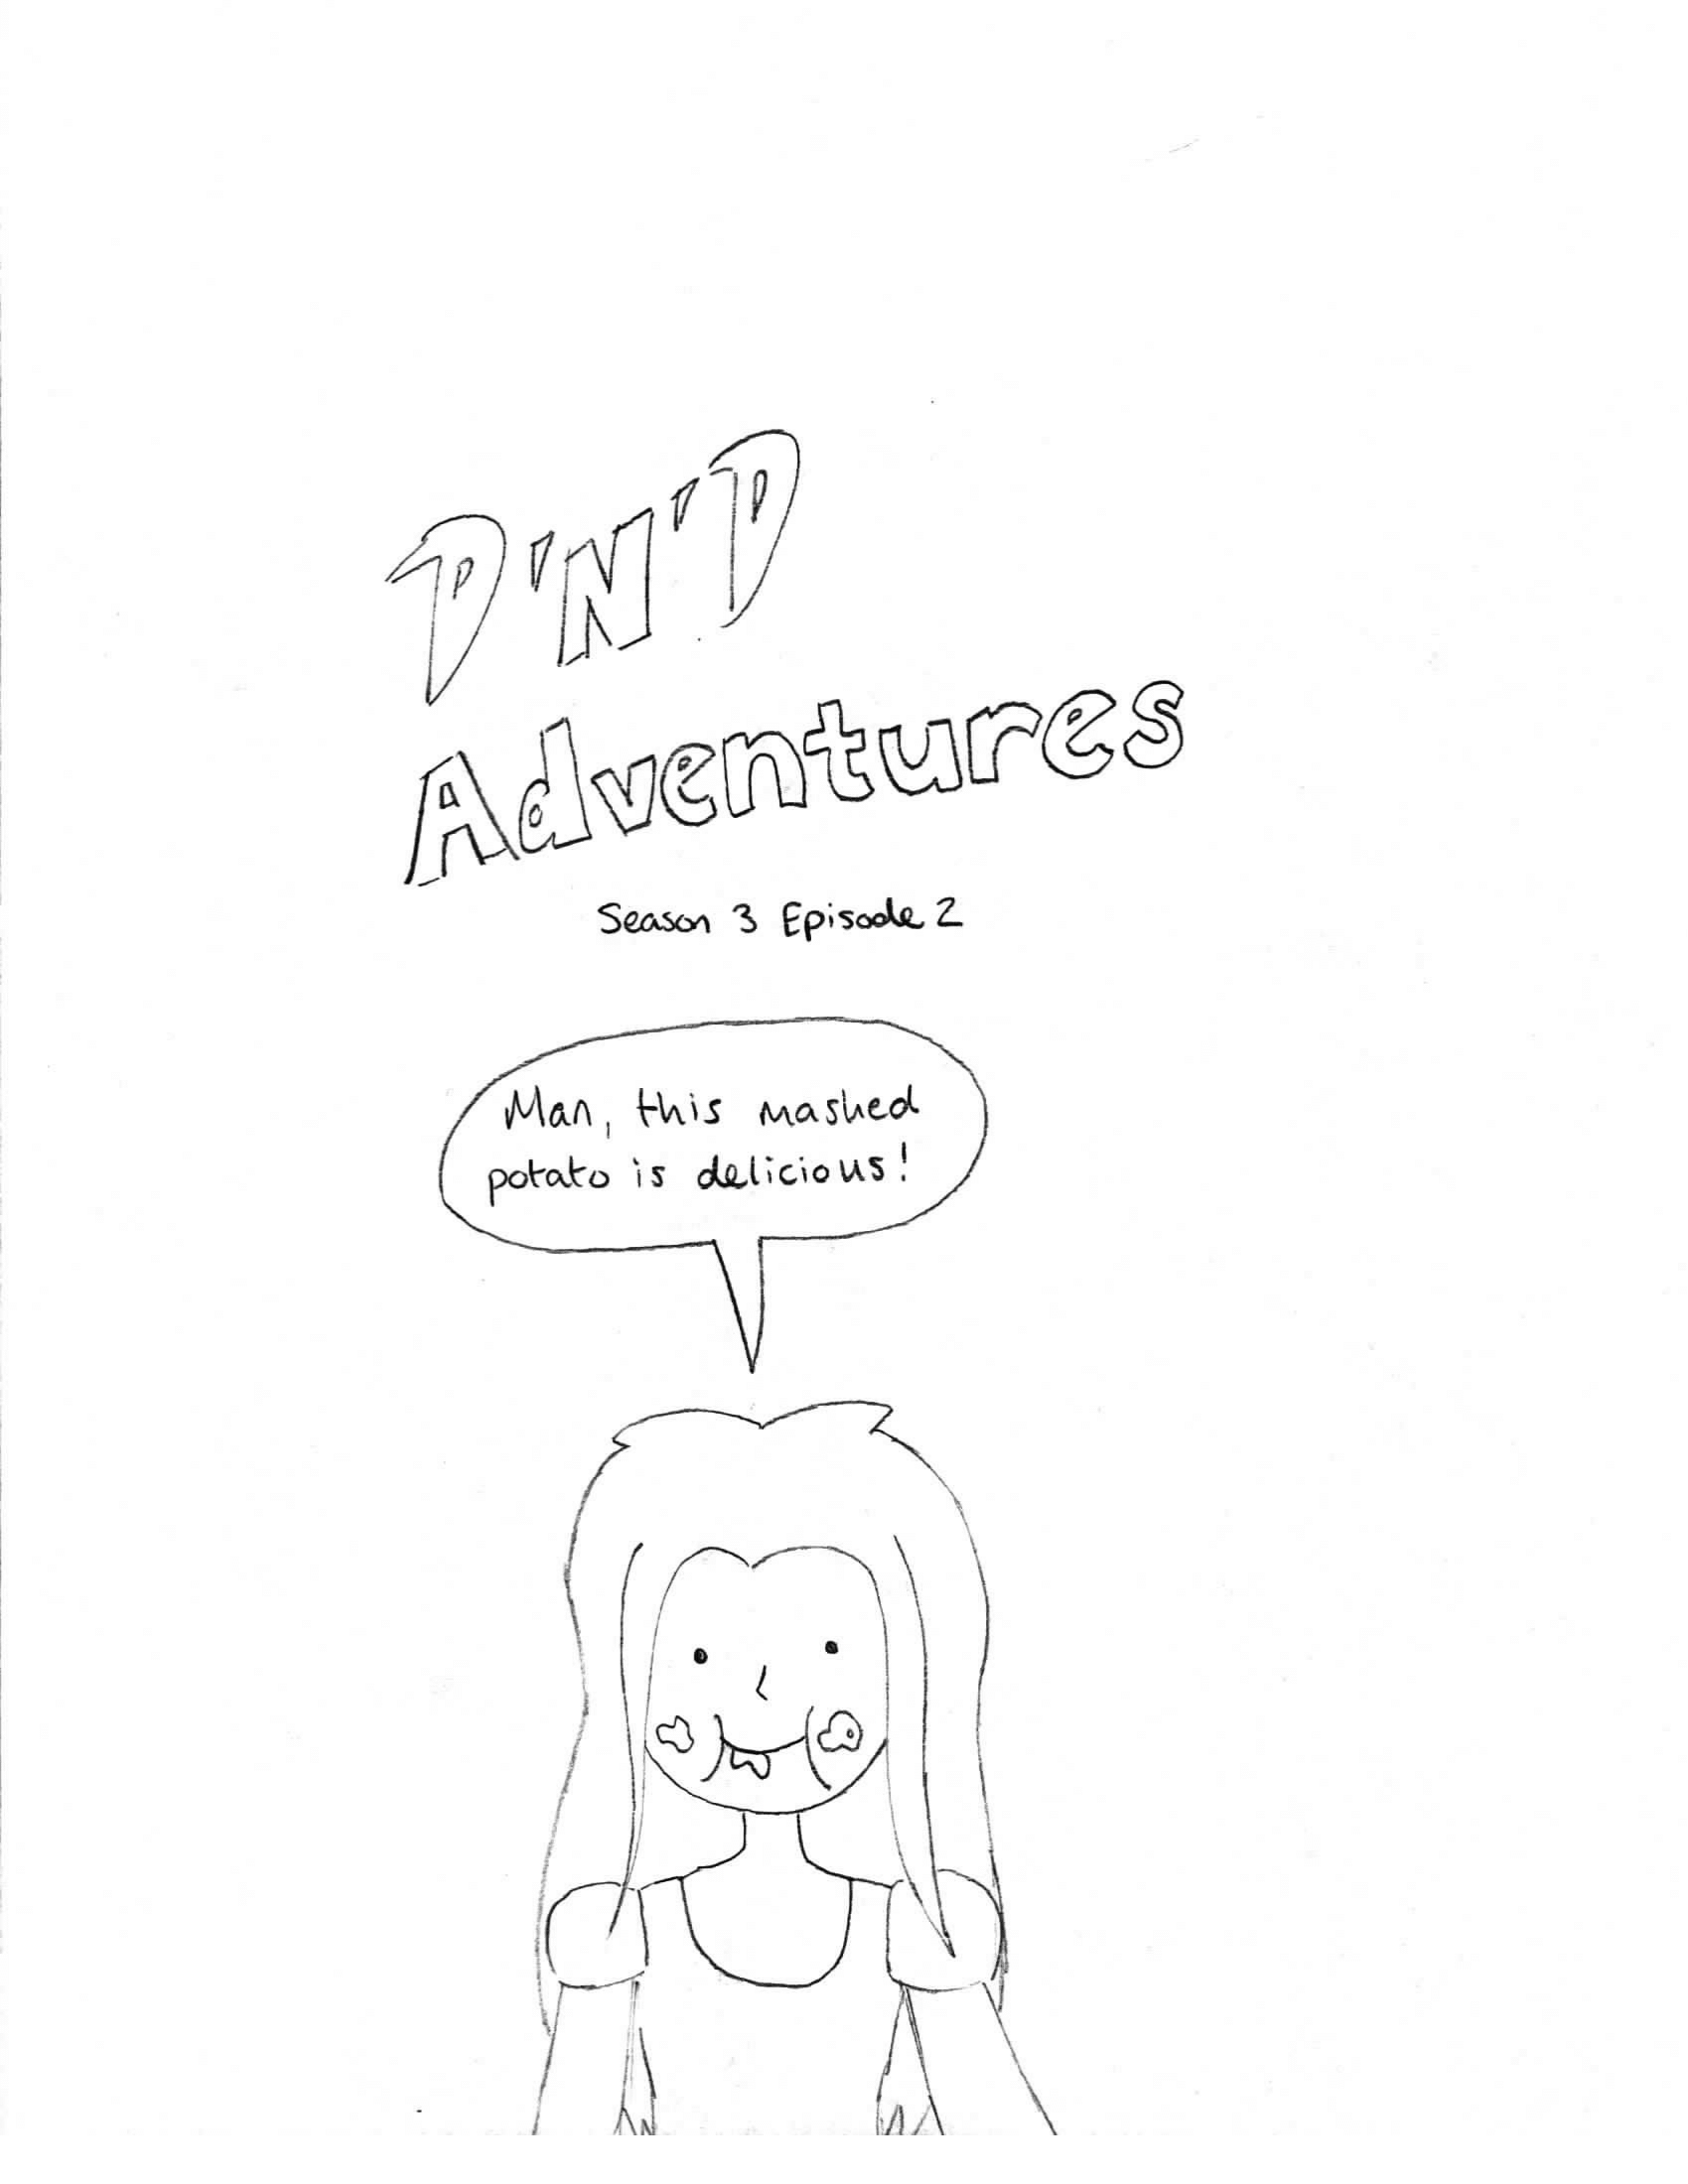 D'N'D
Adventures
Season 3 Episode 2
Man, this mashed
potato is delicious!